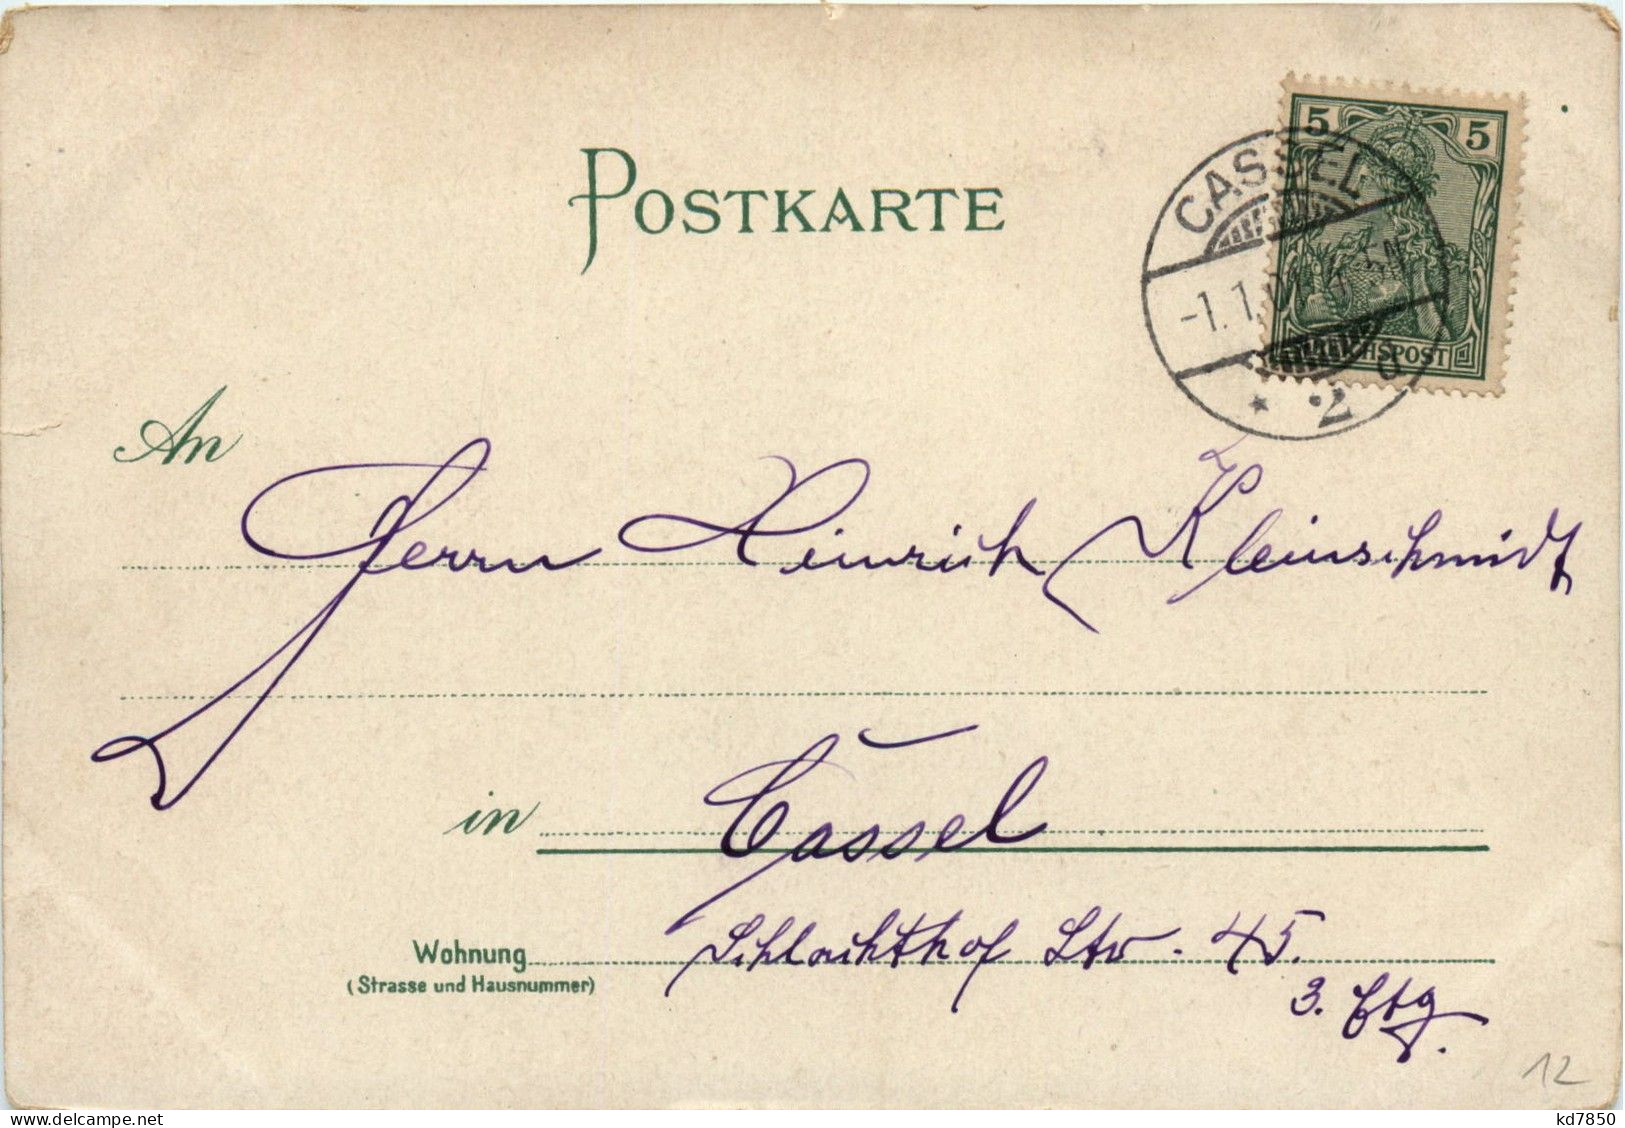 POSTKARTE
5 5
CASSEL
-1.1.01.
REICHSPOST
* 2 d
An
Herrn Heinrich Kleinschmidt
in Cassel
Wohnung Schlachthof Str. 45.
(Strasse und Hausnummer)
3. Etg.
12
kd7850